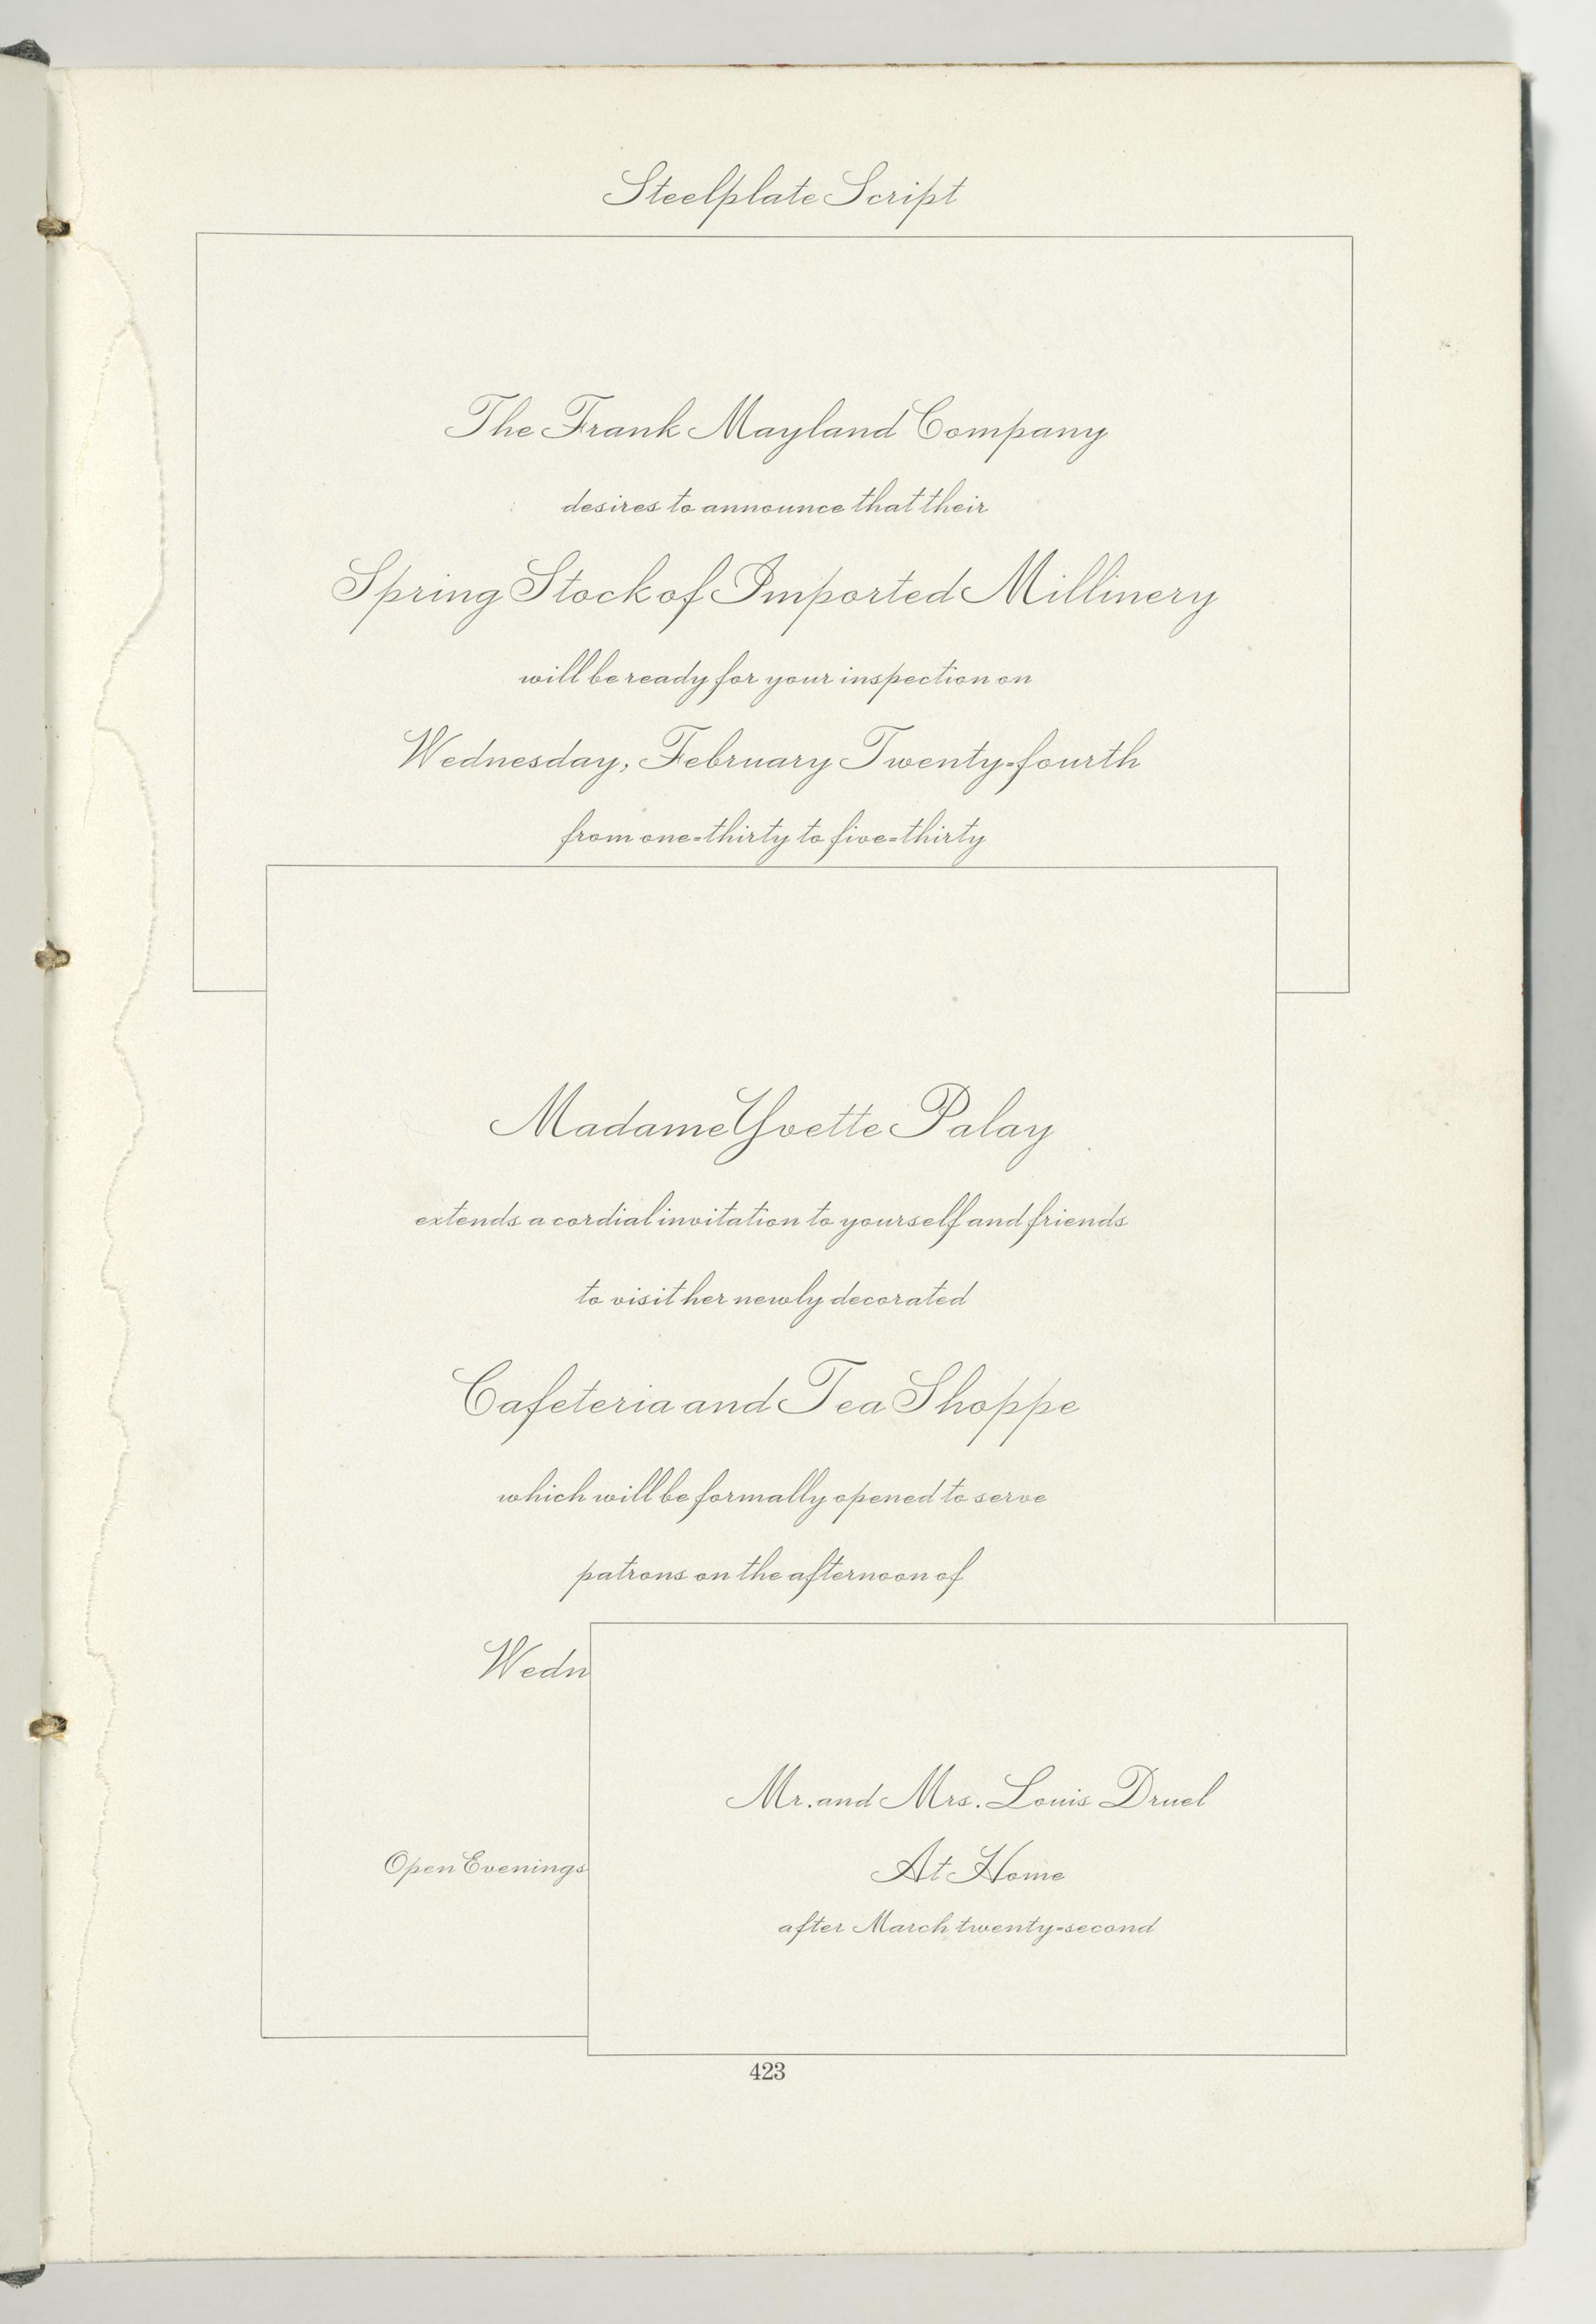 Steelplate Script
The Frank Mayland Company
desires to announce that their
Spring Stock of Imported Millinery
will be ready for your inspection on
Wednesday, February Twenty-fourth
from one-thirty to five-thirty
Madame Yvette Palay
extends a cordial invitation to yourself and friends
to visit her newly decorated
Cafeteria and Tea Shoppe
which will be formally opened to serve
patrons on the afternoon of
Wedn
Open Evenings
Mr. and Mrs. Louis Druel
At Home
after March twenty-second
423